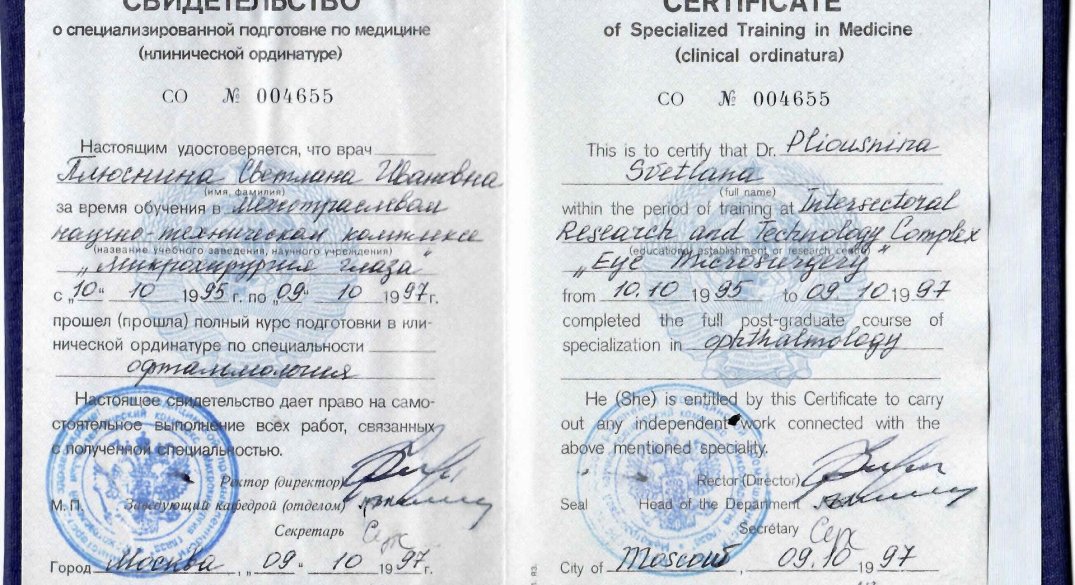 СВИДЕТЕЛЬСТВО
о специализированной подготовке по медицине
(клинической ординатуре)
СО № 004655
Настоящим удостоверяется, что врач
Плюснина Светлана Ивановна
(имя, фамилия)
за время обучения в Межотраслевом
научно-техническом комплексе
(название учебного заведения, научного учреждения)
„Микрохирургия глаза"
с „10" 10 1995 г. по „09" 10 1997 г.
прошел (прошла) полный курс подготовки в кли-
нической ординатуре по специальности
офтальмология
Настоящее свидетельство дает право на само-
стоятельное выполнение всех работ, связанных
с полученной специальностью.
Ректор (директор)
М. П. Заведующий кафедрой (отделом)
Секретарь
Город Москва, „09" 10 1997 г.
CERTIFICATE
of Specialized Training in Medicine
(clinical ordinatura)
СО № 004655
This is to certify that Dr. Pliousnina
Svetlana
(full name)
within the period of training at Intersectoral
Research and Technology Complex
(educationa establishment or research centre)
„Eye Microsurgery"
from 10.10 1995 to 09.10 1997
completed the full post-graduate course of
specialization in ophthalmology
He (She) is entitled by this Certificate to carry
out any independent work connected with the
above mentioned speciality.
Rector (Director)
Seal Head of the Department
Secretary
City of Moscow, 09.10 1997